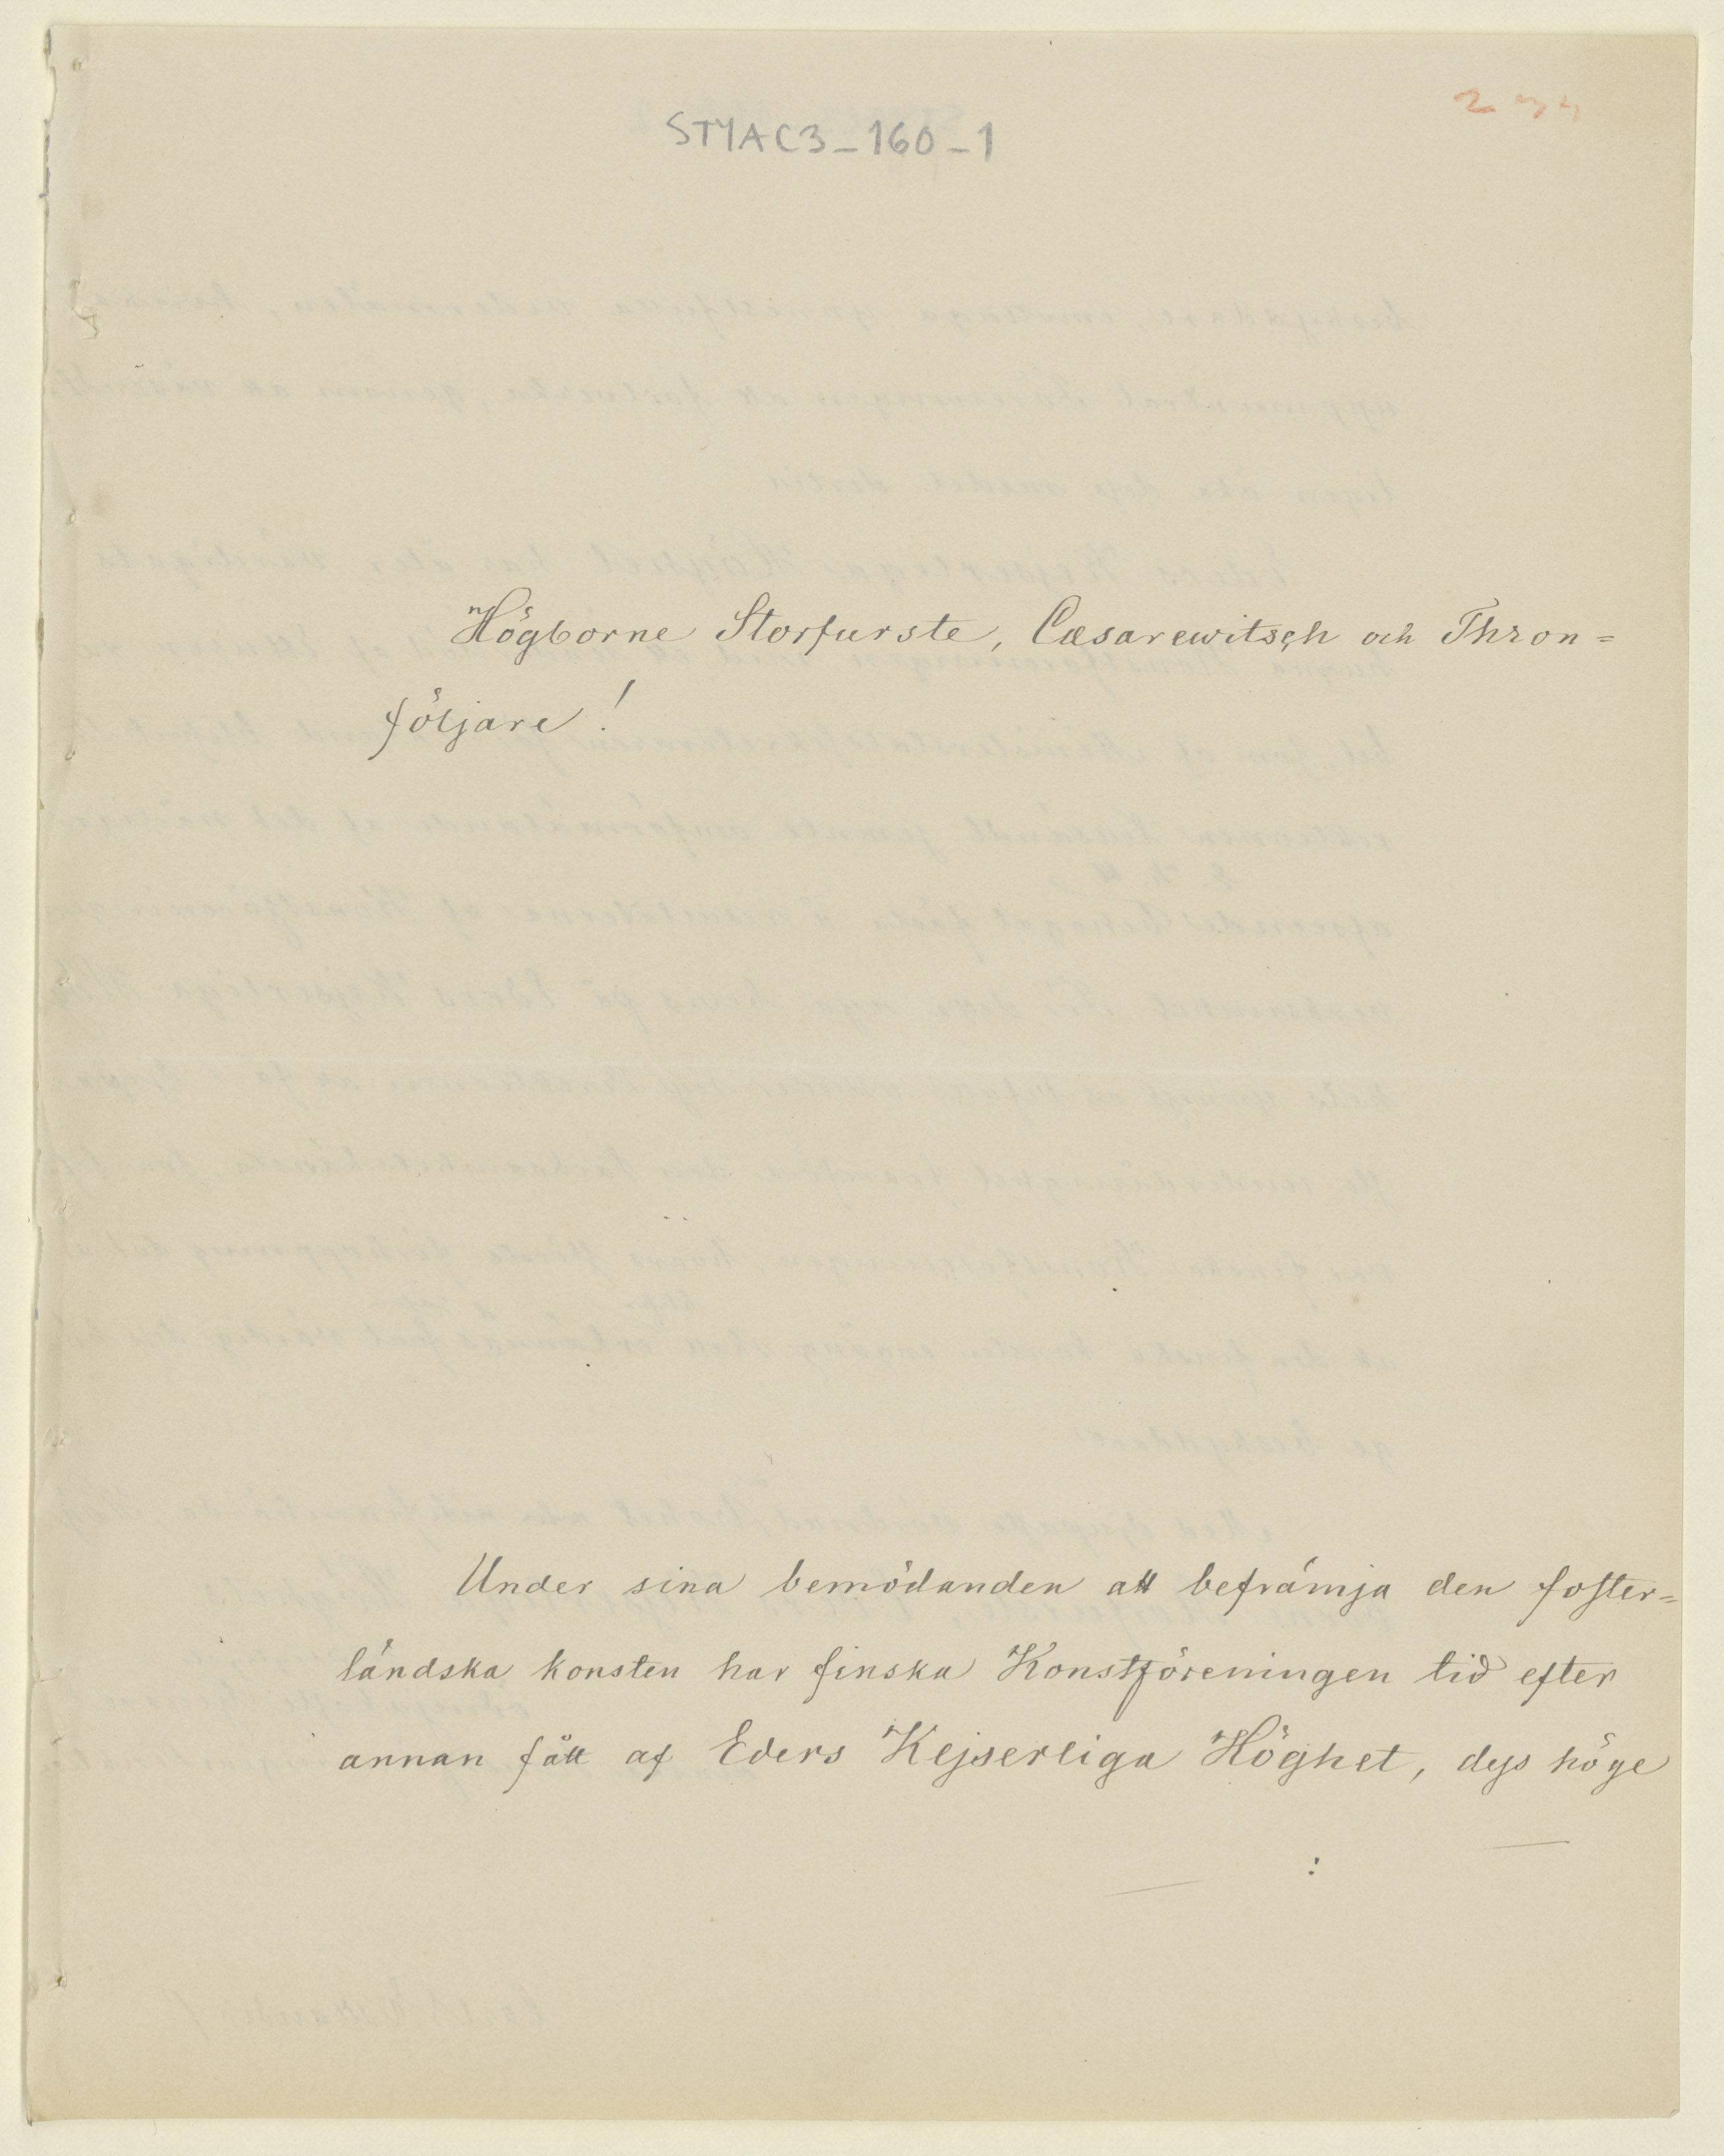 STYAC3_160_1
Högborne Storfurste, Cæsarewitsch och Thron=
följare!
Under sina bemödanden att befrämja den foster=
ländska konsten har finska Konstföreningen tid efter
annan fått af Eders Kejserliga Höghet, dess höge